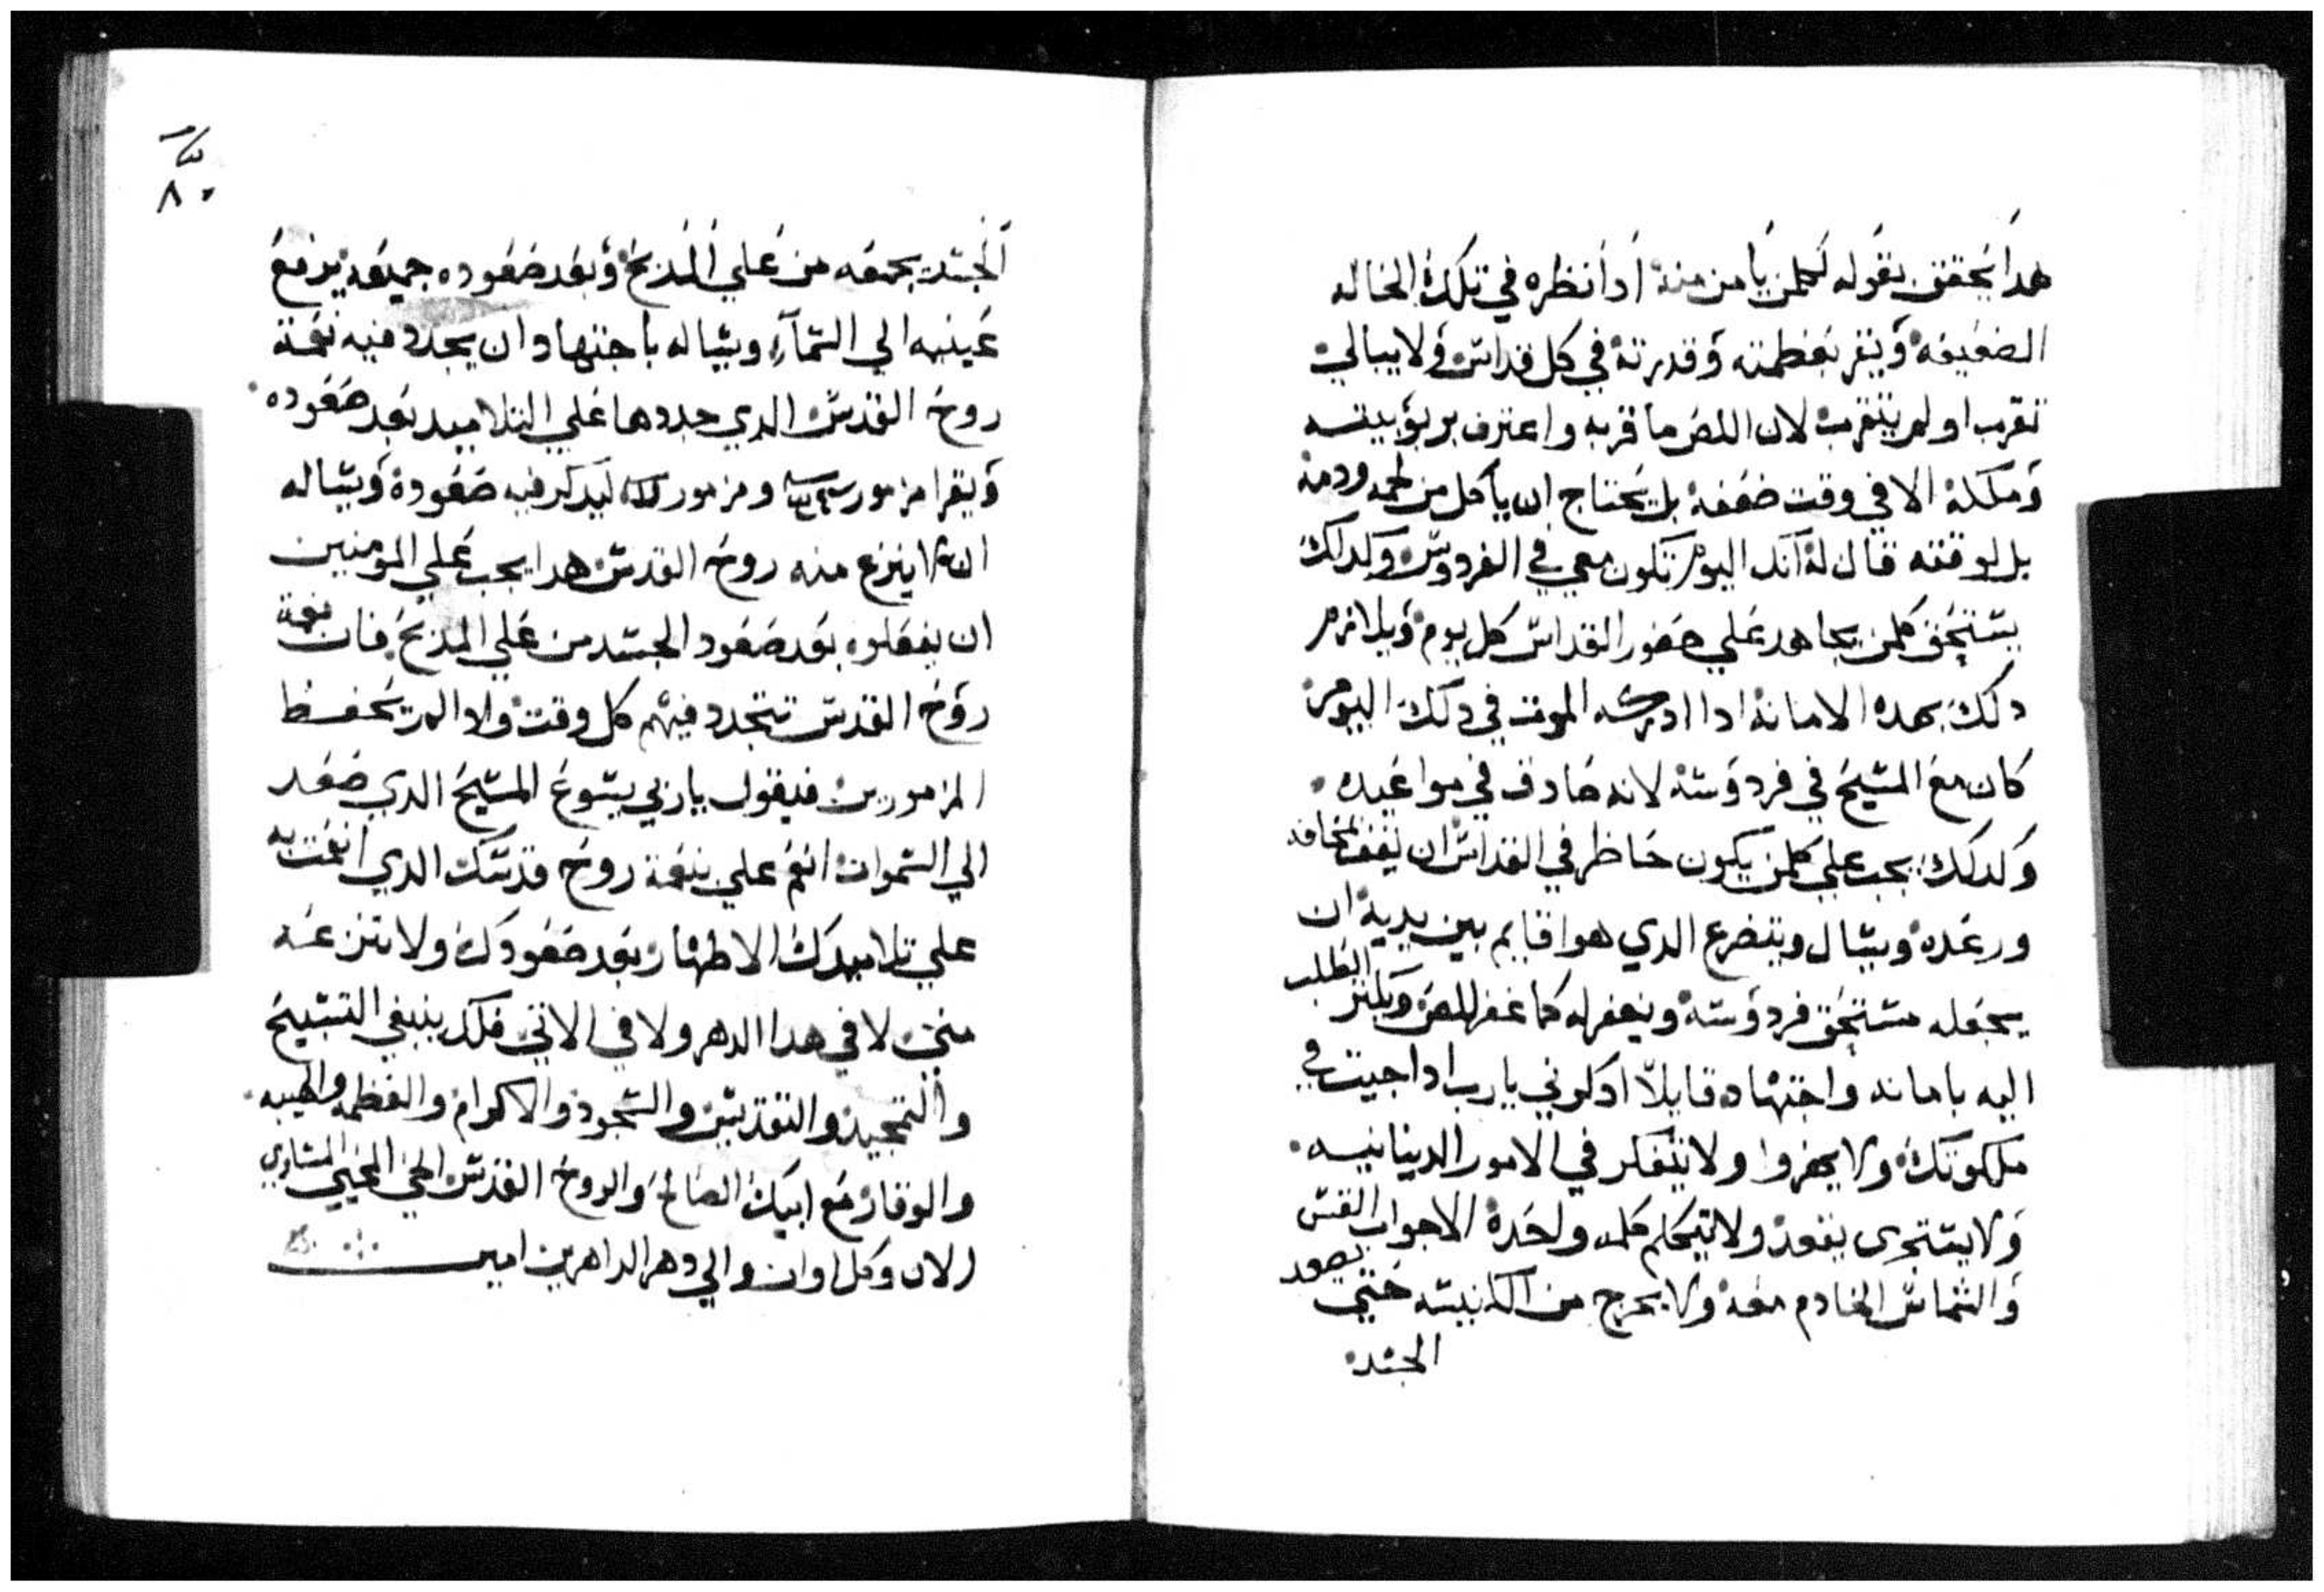 هدا يحقق بقوله لكلمن يامن منة ادا نظره في تلك الحاله
الضعيفه ويقر بعظمته وقدرتة في كل قداس ولا يبالي
تقرب او لم يتقرب لان اللص ما قربه واعترف بربوبيته
وملكة الا في وقت ضعفه بل يحتاج ان ياكل من لحمه ودمه
بل لوقته قال لة انك اليوم تكون معي في الفردوس وكدلك
يستحق كلمن يجاهد علي حضور القداس كل يوم ويلازم
دلك بهده الامانة ادا ادركه الموت في دلك اليوم
كان مع المسيح في فردوسة لانه صادق في مواعيده
وكدلك يجب علي كلمن يكون حاظر في القداس ان يقف بمخافه
ورعده ويسال ويتضرع الدي هوا قايم بين يدية ان
يجعله مستحق فردوسة ويغفر له كما غفر للص ويكتر الطلب
اليه بامانه واجتهاد قايلا ادكرني يارب ادا جيت في
ملكوتك ولا يهزوا ولا يتفكر في الامور الدينانيه
ولا يستجري يقعد ولا يتكلم كلمه واحدة الا جواب القس
والشماس الخادم معة ولا يخرج من الكنيسه حتي يصعد
الجسد
الجسد بجمعه من علي المدبح وبعد صعوده جميعه يرفع
عينيه الي السمآء ويساله باجتهاد ان يجدد فيه نعمة
روح القدس الدي جددها علي التلاميد بعد صعوده
ويقرا مزمور ومزمور ليدكر فيه صعودة ويساله
ان لا ينزع منه روح القدس هدا يجب علي المومنين
ان يفعلوه بعد صعود الجسد من علي المدبح فان نعمة
روح القدس تتجدد فيهم كل وقت وادا لم يحفظ
المزمورين فيقول ياربي يسوع المسيح الدي صعد
الي السموات انعم علي بنعمة روح قدسك الدي انعمت به
علي تلاميدك الاطهار بعد صعودك ولا تنزعه
مني لا في هدا الدهر ولا في الاتي فلك ينبغي التسبيح
والتمجيد والتقديس والسجود والاكرام والعظمه والهيبه
والوقار مع ابيك الصالح والروح القدس المحيي المساوي
الان وكل اوان والي دهر الداهرين امين
٨٠